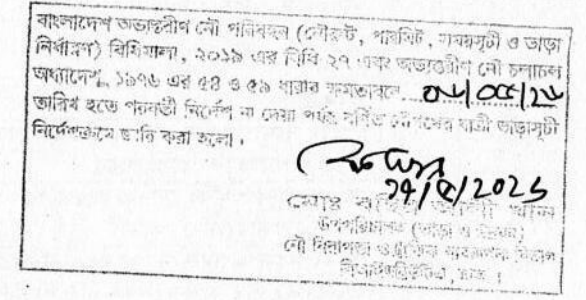 বাংলাদেশ অভ্যন্তরীণ নৌ পরিবহন (নৌরুট, পারমিট, সময়সূচী ও ভাড়া
নির্ধারণ) বিধিমালা, ২০১৯ এর বিধি ২৭ এবং অভ্যন্তরীণ নৌ চলাচল
অধ্যাদেশ, ১৯৭৬ এর ৫৪ ও ৫৯ ধারার ক্ষমতাবলে
তারিখ হতে পরবর্তী নির্দেশ না দেয়া পর্যন্ত বর্ণিত নৌপথের যাত্রী ভাড়াসূচী
নির্দেশক্রমে জারি করা হলো।
মোঃ আলী খান
উপপরিচালক (ভাড়া ও
নৌ নিরাপত্তা ও ট্রাফিক ব্যবস্থাপনা বিভাগ
বিআইডব্লিউটিএ, ঢাকা।